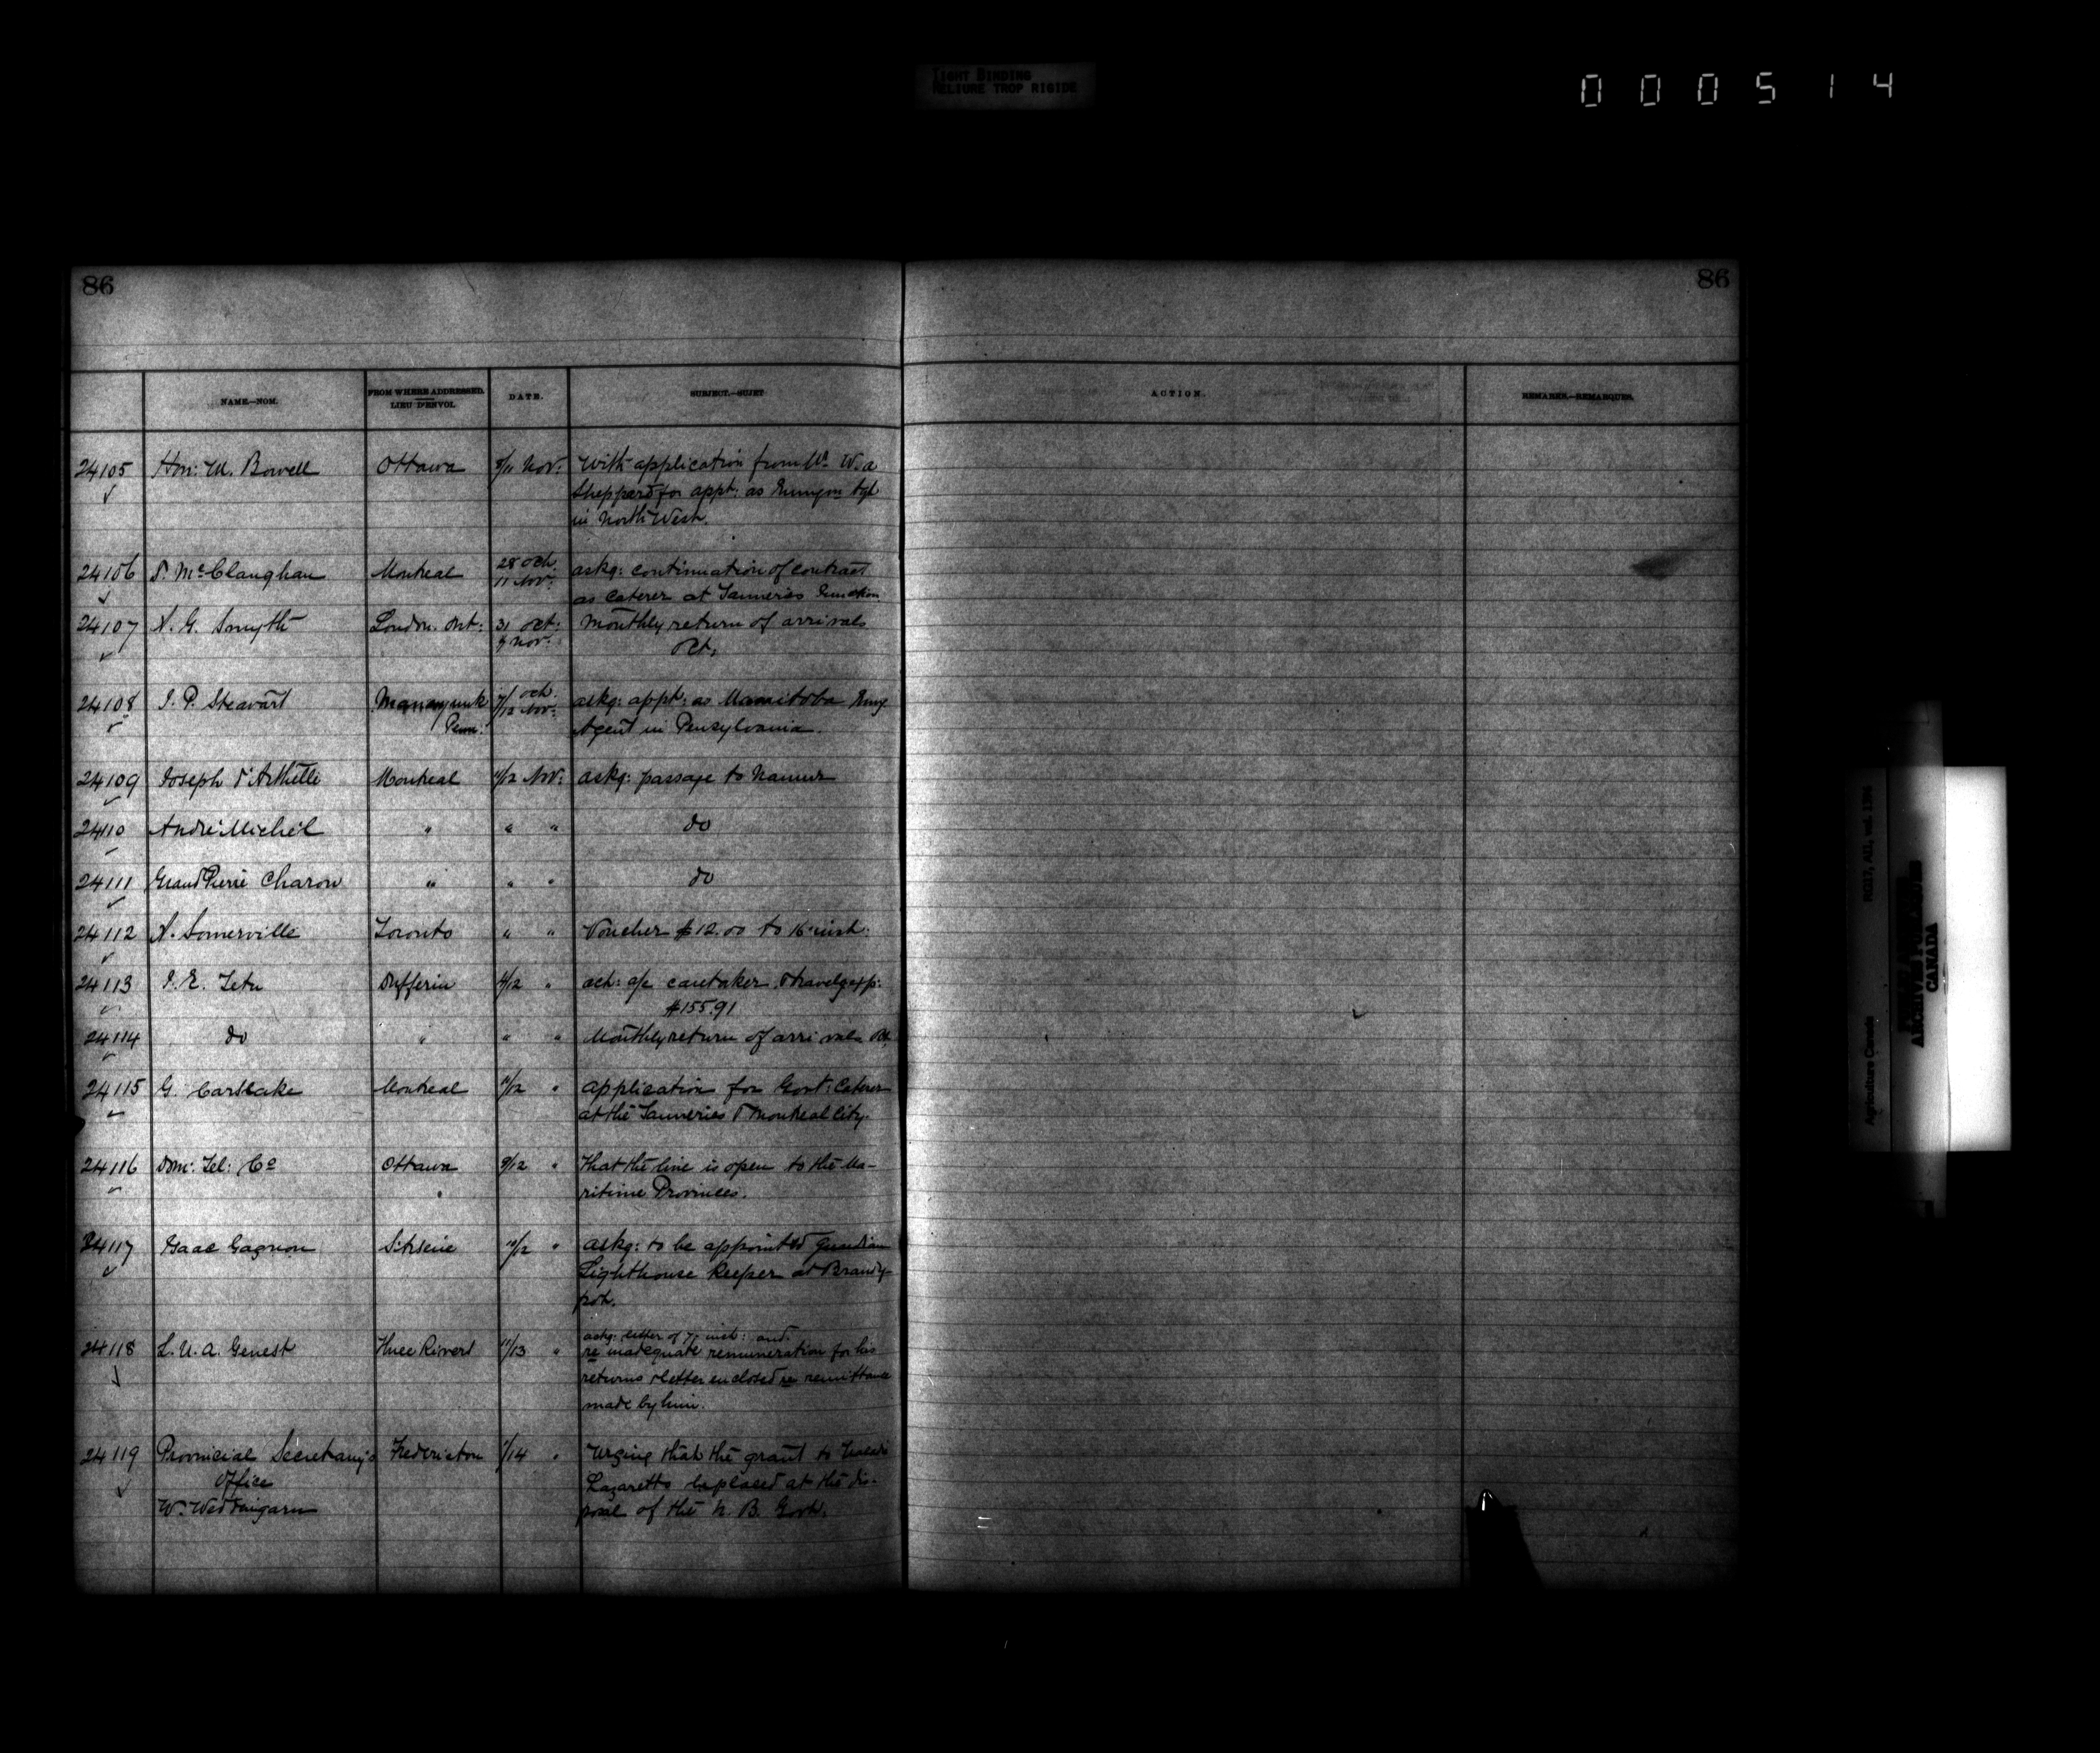 TIGHT BINDING
RELIURE TROP RIGIDE
000514
86
86
NAME.—NOM.
FROM WHERE ADDRESSED.
LIEU D'ENVOI.
DATE.
SUBJECT.—SUJET
ACTION.
REMARKS.—REMARQUES.
24105 Hon: M. Bowell Ottawa 8/11 Nov: With application from Mr W. A
Sheppard for appt: as Immgon Agt
in North West.
24106 P. McClanaghan Montreal 28 Oct. 11 Nov: askg: continuation of contract
as caterer at Tanneries Junction
24107 A. G. Smyth London. Ont: 31 Oct: 9 Nov: Monthly return of arrivals
Oct.
24108 J. P. Steavart Manayunk 7/12 Oct. Nov: askg: appt: as Manitoba Emig
Penn. Agent in Pensylvania.
24109 Joseph Montreal 11/12 Nov: askg: passage to Namur
24110 André Michel " " " do
24111 Grand Pierre Charon " " " do
24112 A. Somerville Toronto " " Voucher $12.00 to 16 inst:
24113 J. E. Tetu Dufferin 4/12 " act: a/c caretaker & travelg exp:
$155.91
24114 do " " " Monthly return of arrivals Oct.
24115 G. Carslake Montreal 11/12 " application for Govt: Caterer
at the Tanneries & Montreal City.
24116 Dom: Tel: Co Ottawa 9/12 " that the line is open to the Ma-
ritime Provinces.
24117 Isaac Gagnon St Arsène 10/12 " askg: to be appointed guardian
Lighthouse Keeper at Brandy-
pot.
askg: letter of 7 inst: and
24118 L. U. A. Genest Three Rivers 11/13 " re inadequate remuneration for his
returns & letter enclosed re remittance
made by him.
24119 Provincial Secretary's Fredericton /14 " Urging that the grant to Tracadie
Office Lazaretto be placed at the dis-
W. Wedd posal of the N. B. Govt.
RG17, AII, vol. 1396
Agriculture Canada
PUBLIC ARCHIVES
ARCHIVES PUBLIQUES
CANADA